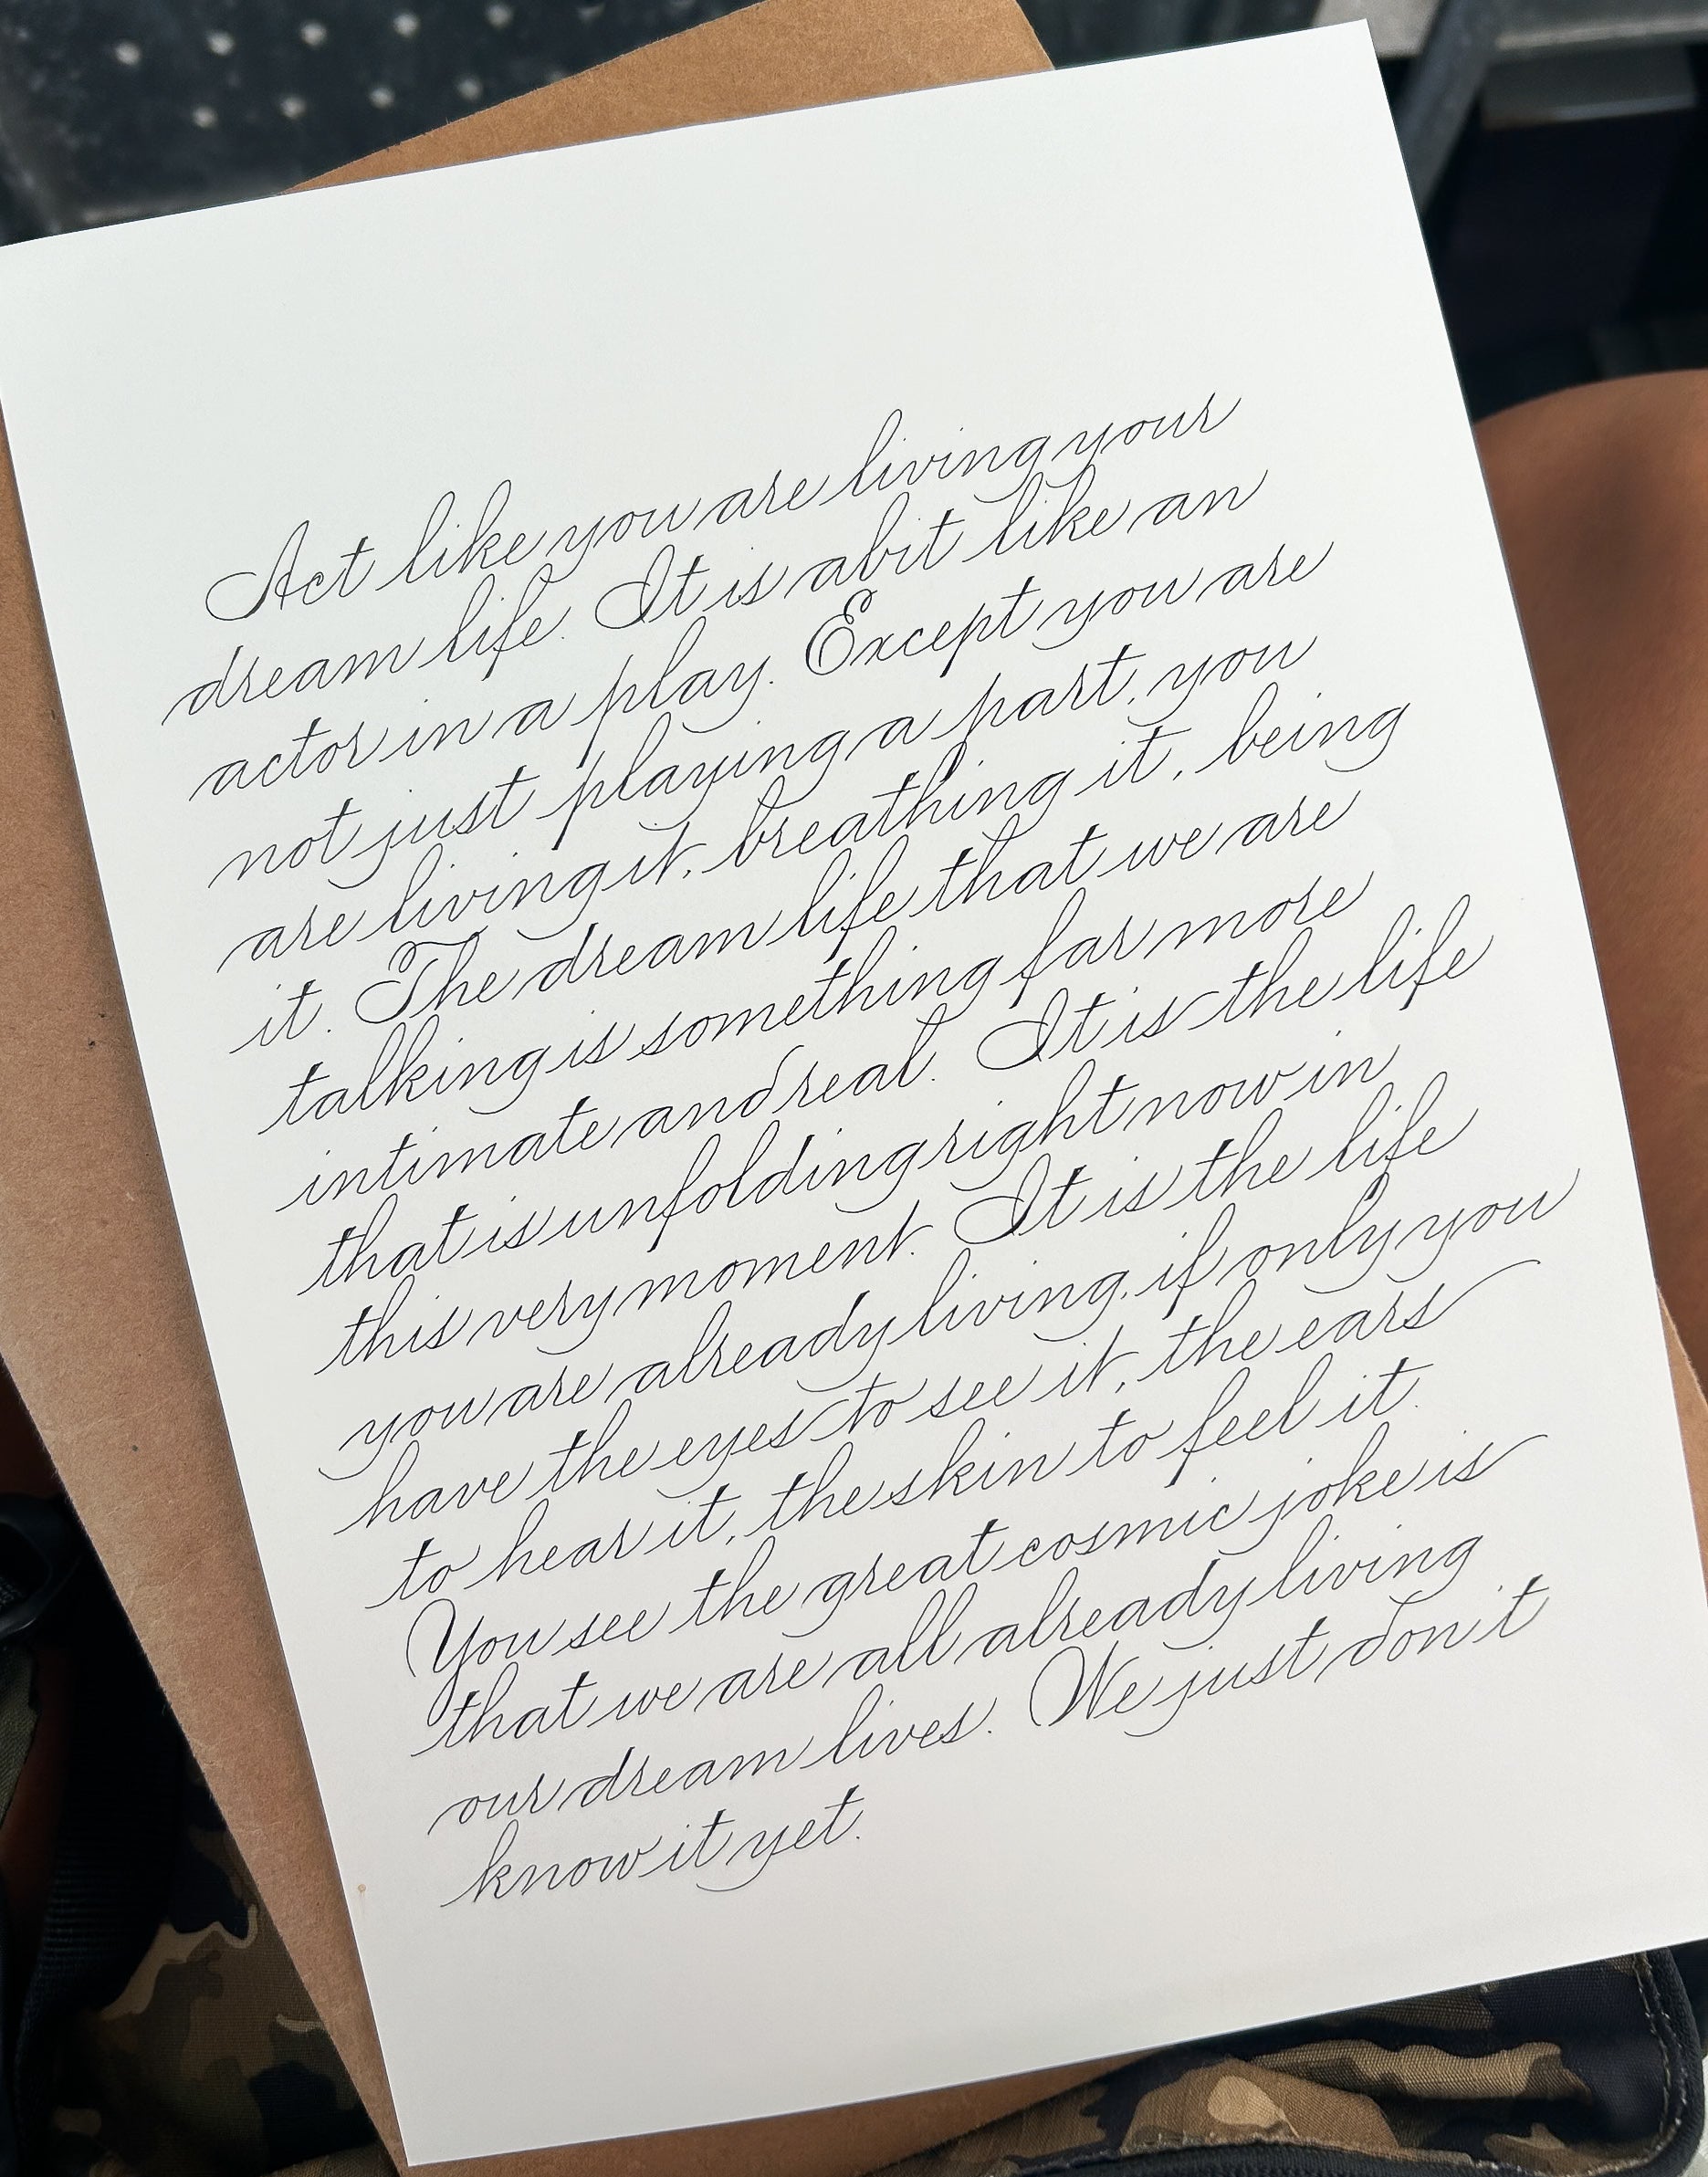 Act like you are living your
dream life. It is a bit like an
actor in a play. Except you are
not just playing a part, you
are living it, breathing it, being
it. The dream life that we are
talking is something far more
intimate and real. It is the life
that is unfolding right now in
this very moment. It is the life
you are already living, if only you
have the eyes to see it, the ears
to hear it, the skin to feel it.
You see the great cosmic joke is
that we are all already living
our dream lives. We just don't
know it yet.